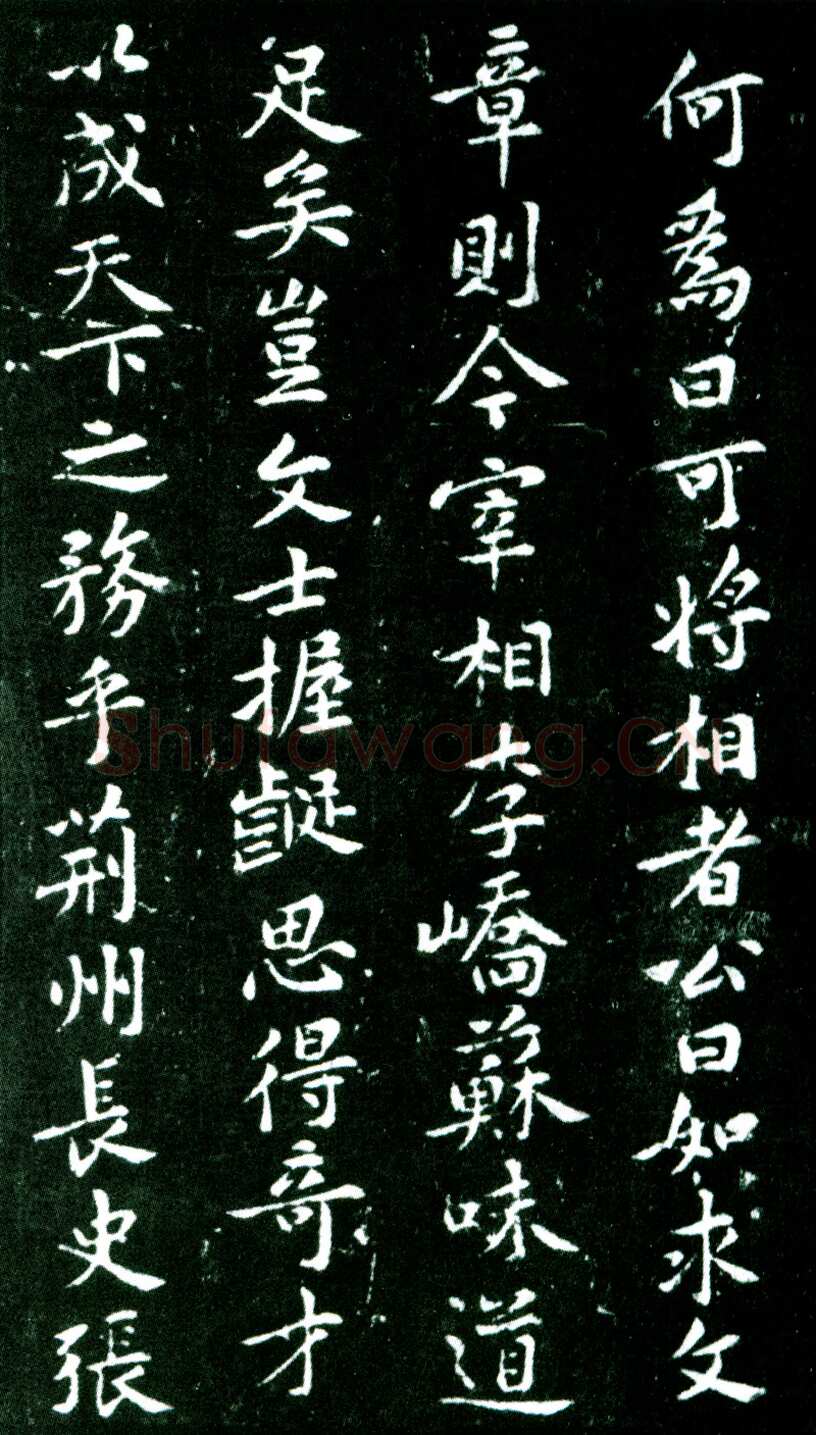 何為曰可將相者公曰如求文
章則今宰相李嶠蘇味道
足矣豈文士握齪思得奇才
以成天下之務乎荊州長史張
Shufawang.CN